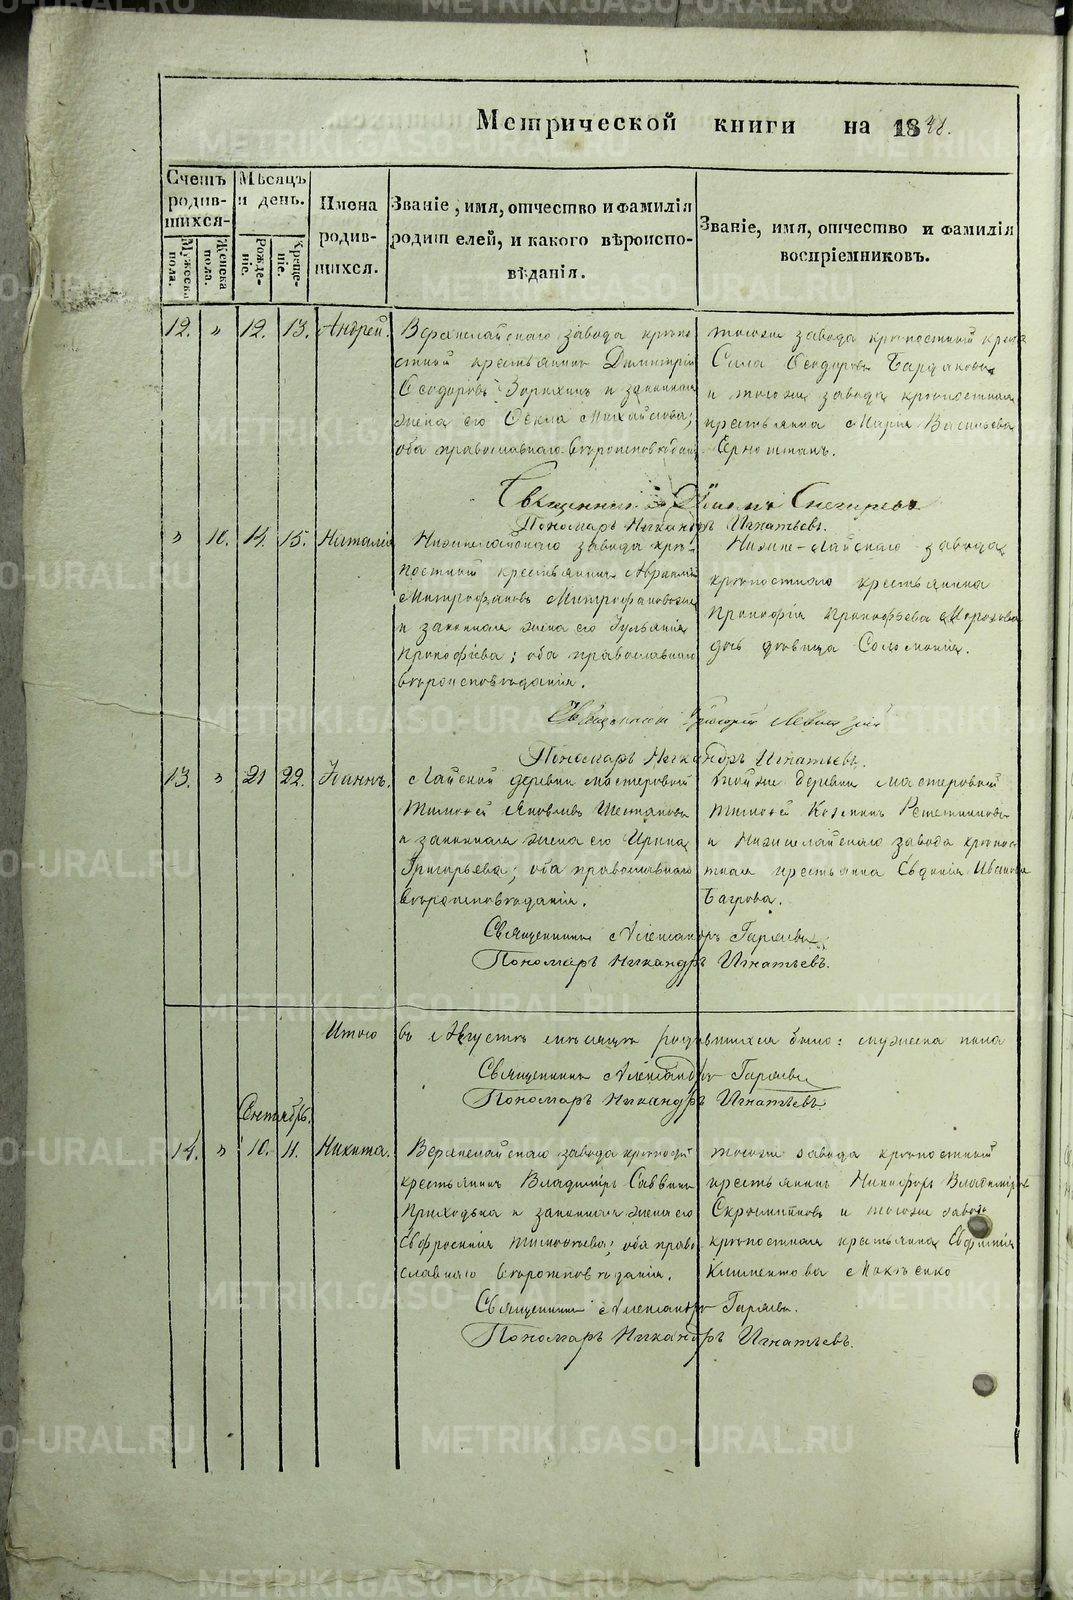 Метрической книги на 1848.
Счетъ родив- шихся.
Мѣсяцъ и день.
Имена родив- шихся.
Званіе, имя, отчество и фамилія родителей, и какого вѣроиспо- вѣданія.
Званіе, имя, отчество и фамилія воспріемниковъ.
Мужеска пола.
Женска пола.
Рожде- ніе.
Креще- ніе.
12. " 12. 13. Андрей.
Верхнелайскаго завода крѣпо-
стной крестьянинъ Димитрій
Ѳеодоровъ и законная
жена его Ѳекла Михайлова;
оба православнаго вѣроисповѣданія
тогоже завода крѣпостной
Сила Ѳеодоровъ
и тогоже завода крѣпостная
крестьянка Марія Васильева
Священникъ
Пономарь Никандръ Игнатьевъ.
" 10. 14. 15. Наталія
Нижнелайскаго завода крѣ-
постной крестьянинъ
Митрофановъ
и законная жена его Іульянія
Прокофіева; оба православнаго
вѣроисповѣданія.
Нижне-лайскаго завода
крѣпостнаго крестьянина
Прокофія Прокофьева Морозова
дочь дѣвица Соломонія.
Священникъ Григорій
Пономарь Никандръ Игнатьевъ.
13. " 21 22. Іоаннъ.
Лайской деревни мастеровой
Тимоѳей Яковлевъ
и законная жена его Ирина
Григорьева; оба православнаго
вѣроисповѣданія.
тойже деревни мастеровой
Тимоѳей Козминъ Решетниковъ
и Нижнелайскаго завода крѣпос-
тная крестьянка Евдокія Иванова
Багрова.
Священникъ Александръ Гаряевъ
Пономарь Никандръ Игнатьевъ.
Итого въ Августѣ мѣсяцѣ родившихся было: мужеска пола
Священникъ Александръ Гаряевъ
Пономарь Никандръ Игнатьевъ
Сентябрь.
14. " 10. 11. Никита.
Верхнелайскаго завода крѣпостной
крестьянинъ Владиміръ Саввинъ
Приходько и законная жена его
Евфросинія Тимоѳеева; оба право-
славнаго вѣроисповѣданія.
тогоже завода крѣпостной
крестьянинъ Никифоръ Владиміровъ
и тогоже завода
крѣпостная крестьянка Евфимія
Климентова
Священникъ Александръ Гаряевъ.
Пономарь Никандръ Игнатьевъ.
METRIKI.GASO-URAL.RU